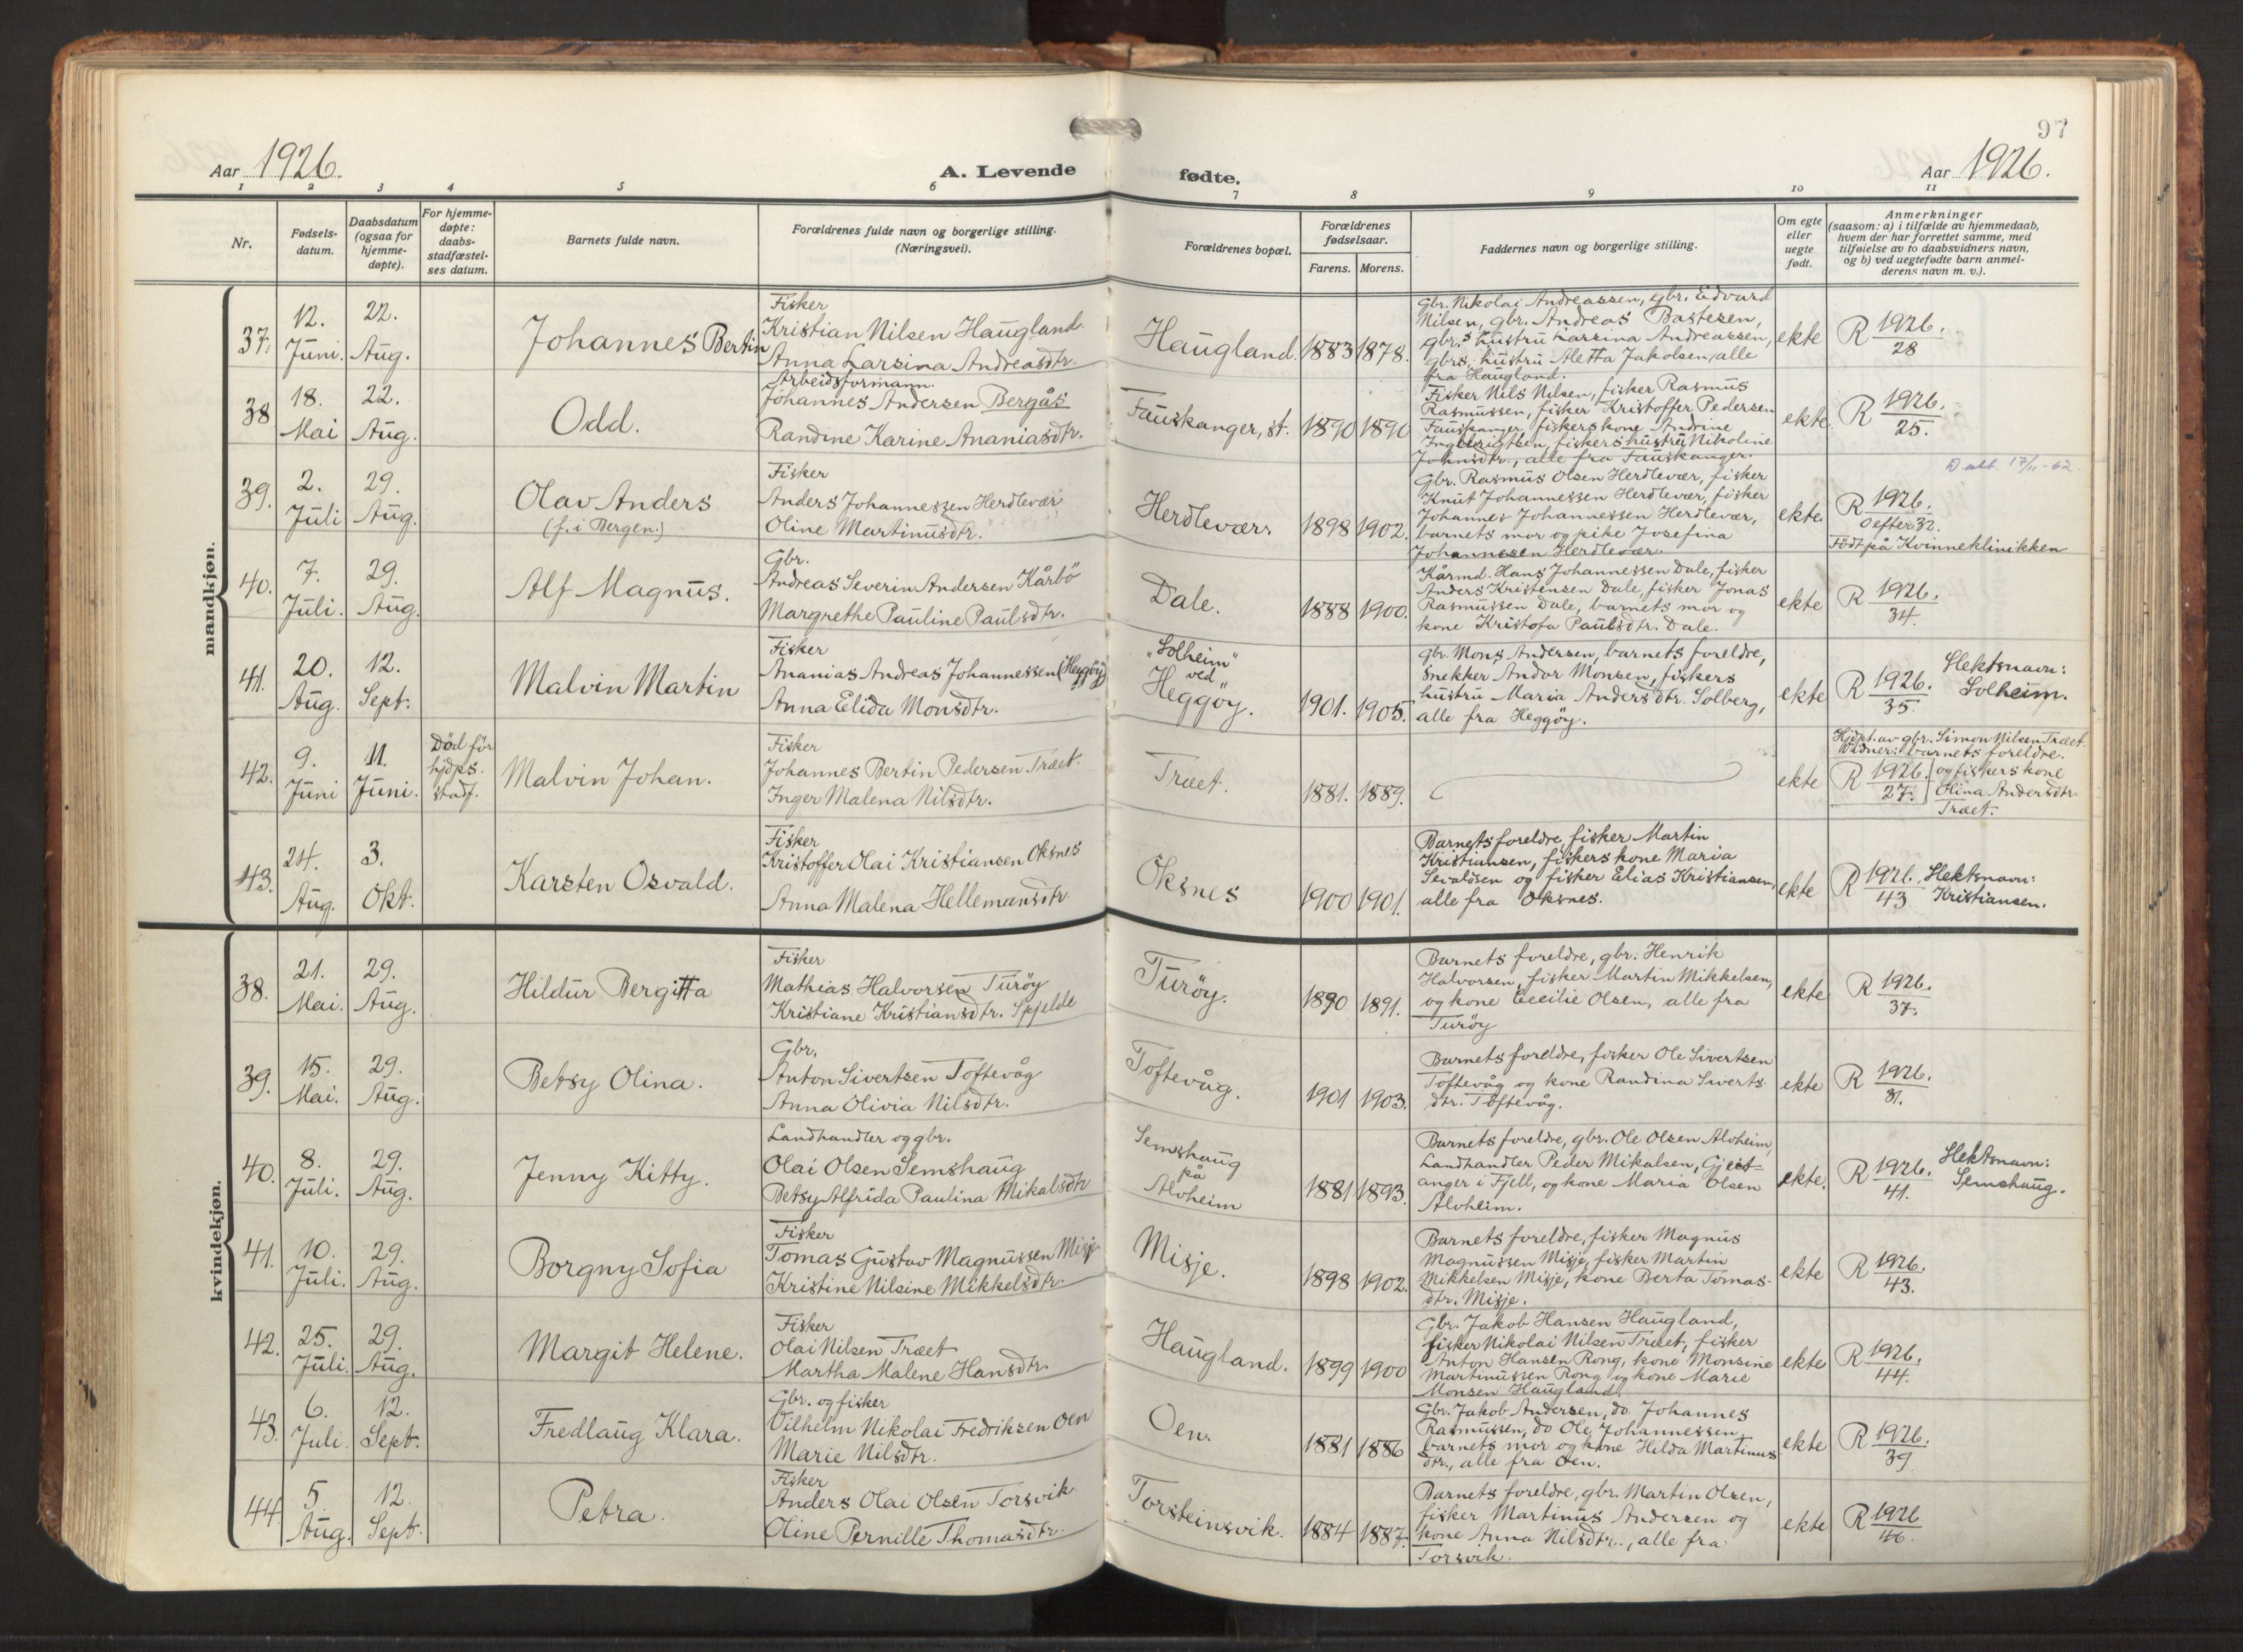 97
Aar 1926.
A. Levende
fødte.
Aar 1926.
1 2 3 4 5 6 7 8 9 10 11
Nr.
Fødsels-
datum.
Daabsdatum
(ogsaa for
hjemme-
døpte).
For hjemme-
døpte:
daabs-
stadfæstel-
ses datum.
Barnets fulde navn.
Forældrenes fulde navn og borgerlige stilling.
(Næringsvei).
Forældrenes bopæl.
Forældrenes
fødselsaar.
Farens. Morens.
Faddernes navn og borgerlige stilling.
Om egte
eller
uegte
født.
Anmerkninger
(saasom: a) i tilfælde av hjemmedaab,
hvem der har forrettet samme, med
tilføielse av to daabsvidners navn,
og b) ved uegtefødte barn anmel-
derens navn m. v.).
mandkjøn.
37.
12.
Juni.
22.
Aug.
Johannes Bertin
Fisker
Kristian Nilsen Haugland
Anna Larsina Andreasdtr.
Haugland.
1883 1878.
Gbr. Nikolai Andreassen, gbr. Edvard
Nilsen, gbr. Andreas Bastesen,
gbr.s hustru Larsina Andreassen,
gbrs. hustru Aletta Jakobsen, alle
fra Haugland.
ekte
R 1926.
28
38
18.
Mai
22.
Aug.
Odd.
Arbeidsformann.
Johannes Andersen Bergås
Randine Karine Ananiasdtr.
Fauskanger, st.
1890 1890
Fisker Nils Nilsen, fisker Rasmus
Rasmussen, fisker Kristoffer Pedersen
Fauskanger, fiskerskone Andrine
Ingebrigtsen, fiskers hustru Nikoline
Johnsdtr., alle fra Fauskanger.
ekte.
R 1926.
25.
39.
2.
Juli
29.
Aug.
Olav Anders
(f. i Bergen.)
Fisker
Anders Johannessen Herdlevær
Oline Martinusdtr.
Herdlevær.
1898 1902.
Gbr. Rasmus Olsen Herdlevær, fisker
Knut Johannessen Herdlevær, fisker
Johannes Johannessen Herdlevær,
barnets mor og pike Josefina
Johannessen Herdlevær.
ekte.
D. att. 17/11-62
R 1926.
0 efter 32.
Født på Kvinneklinikken
40.
7.
Juli.
29.
Aug.
Alf Magnus.
Gbr.
Andreas Severin Andersen Kårbö
Margrethe Pauline Paulsdtr.
Dale.
1888 1900.
Kårmd. Hans Johannessen Dale, fisker
Anders Kristensen Dale, fisker Jonas
Rasmussen Dale, barnets mor og
kone Kristofa Paulsdtr. Dale.
ekte
R 1926.
34.
41.
20.
Aug.
12.
Sept.
Malvin Martin
Fisker
Ananias Andreas Johannessen (Heggøy)
Anna Elida Monsdtr.
"Solheim"
ved
Heggøy.
1901. 1905.
Gbr. Mons Andersen, barnets foreldre,
Snekker Andor Monsen, fiskers
hustru Maria Andersdtr. Solberg,
alle fra Heggøy.
ekte
R 1926.
35.
Slektsnavn:
Solheim.
42.
9.
Juni
11.
Juni.
Död för
hjdps.
stadf.
Malvin Johan.
Fisker
Johannes Bertin Pedersen Træet.
Inger Malena Nilsdtr.
Træet.
1881. 1889.
ekte
Hjdpt. av gbr. Simon Nilsen Træet.
Vidner: barnets foreldre.
R 1926.
27.
og fiskerskone
Olina Andersdtr.
Træet.
43.
24.
Aug.
3.
Okt.
Karsten Osvald.
Fisker
Kristoffer Olai Kristiansen Oksnes
Anna Malena Hellemansdtr.
Oksnes
1900 1901.
Barnets foreldre, fisker Martin
Kristiansen, fiskerskone Maria
Sevaldsen og fisker Elias Kristiansen,
alle fra Oksnes.
ekte
R 1926.
43
Slektsnavn:
Kristiansen.
kvindekjøn.
38.
21.
Mai.
29.
Aug.
Hildur Bergitta
Fisker
Mathias Halvorsen Turöy
Kristiane Kristiansdtr. Spjelde
Turöy.
1890 1891.
Barnets foreldre, gbr. Henrik
Halvorsen, fisker Martin Mikkelsen,
og kone Cecilie Olsen, alle fra
Turöy
ekte
R 1926.
37.
39.
15.
Mai.
29.
Aug.
Betsy Olina.
Gbr.
Anton Sivertsen Toftevåg
Anna Olivia Nilsdtr.
Toftevåg.
1901 1903.
Barnets foreldre, fisker Ole Sivertsen
Toftevåg og kone Randina Siverts-
dtr. Toftevåg.
ekte
R 1926.
31.
40.
8.
Juli.
29.
Aug.
Jenny Kitty.
Landhandler og gbr.
Olai Olsen Semshaug
Betsy Alfrida Paulina Mikalsdtr
Semshaug
på
Alvheim
1881 1893.
Barnets foreldre, gbr. Ole Olsen Alvheim,
Landhandler Peder Mikalsen, Gjeit-
anger i Fjell, og kone Maria Olsen
Alvheim.
ekte.
R 1926.
41.
Slektsnavn:
Semshaug.
41.
10.
Juli.
29.
Aug.
Borgny Sofia
Fisker
Tomas Gustav Magnussen Misje
Kristine Nilsine Mikkelsdtr.
Misje.
1898 1902.
Barnets foreldre, fisker Magnus
Magnussen Misje, fisker Martin
Mikkelsen Misje, kone Berta Tomas-
dtr. Misje.
ekte
R 1926.
43.
42.
25.
Juli.
29.
Aug.
Margit Helene.
Fisker
Olai Nilsen Træet
Martha Malene Hansdtr.
Haugland.
1899 1900
Gbr. Jakob Hansen Haugland,
fisker Nikolai Nilsen Træet, fisker
Anton Hansen Rong, kone Monsine
Martinussen Rong og kone Marie
Monsen Haugland.
ekte
R 1926.
44.
43.
6.
Juli.
12.
Sept.
Fredlaug Klara.
Gbr. og fisker
Vilhelm Nikolai Fredriksen Oen
Marie Nilsdtr.
Oen.
1881 1886
Gbr. Jakob Andersen, do. Johannes
Rasmussen, do Ole Johannessen,
barnets mor og kone Hilda Martinus
dtr., alle fra Oen.
ekte
R 1926.
39
44.
5.
Aug.
12.
Sept.
Petra.
Fisker
Anders Olai Olsen Torsvik
Oline Pernille Thomasdtr.
Torsteinsvik.
1884 1887.
Barnets foreldre, gbr. Martin Olsen,
fisker Martinus Andersen og
kone Anna Nilsdtr., alle fra
Torsvik.
ekte
R 1926
46.